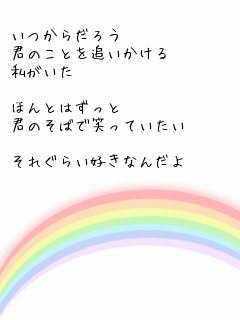 いつからだろう
君のことを追いかける
私がいた
ほんとはずっと
君のそばで笑っていたい
それぐらい好きなんだよ